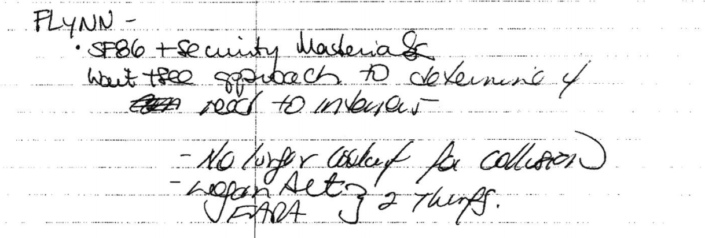 FLYNN -
• SF86 + Security Materials
Wait + see approach to determine if
need to interview
- No longer looking for collusion
- Logan Act
FARA } 2 Things.